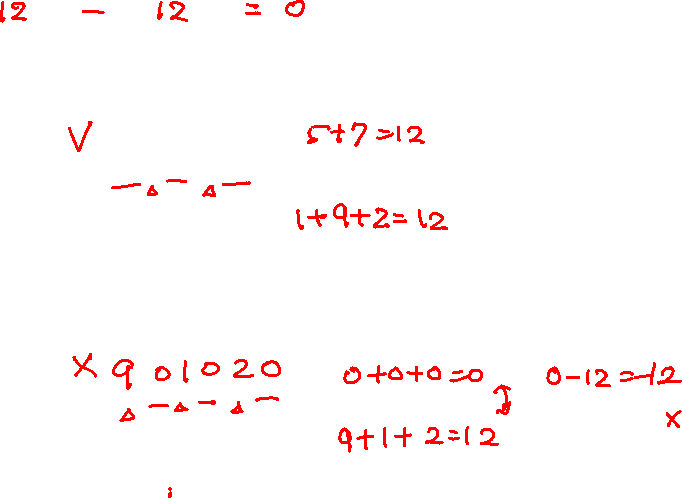 12 - 12 = 0
V 5+7=12
1+9+2=12
X 901020 0+0+0=0 0-12=-12
9+1+2=12 X